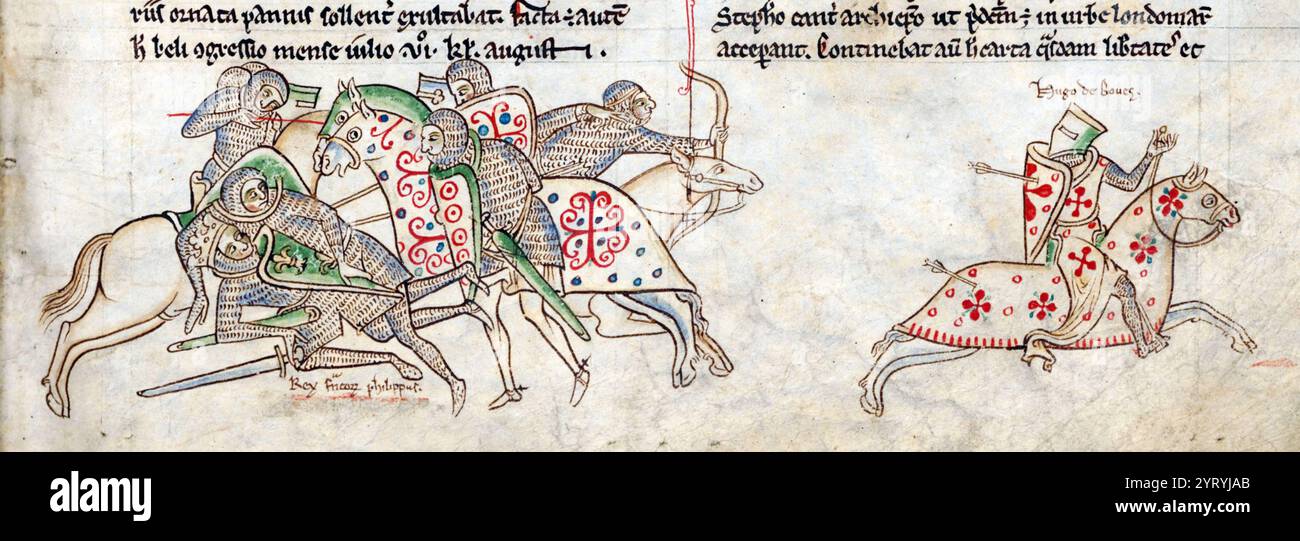 riis ornata pannis sollent͛ exultabat. facta ⁊ autē
h̄ beli ꝯgressio mense iulio vı̊. kł. augusti.
Stepho cant͛ archiep̄o ut p̄dc̄m ⁊ in urbe londoniaꝝ
acceperant. Continebat aū h̄ carta q̄sdam lib͛tates ec
Hugo de Boues.
Rex fr̄ncoꝝ philippus.
alamy
Image ID: 2YRYJAB
www.alamy.com